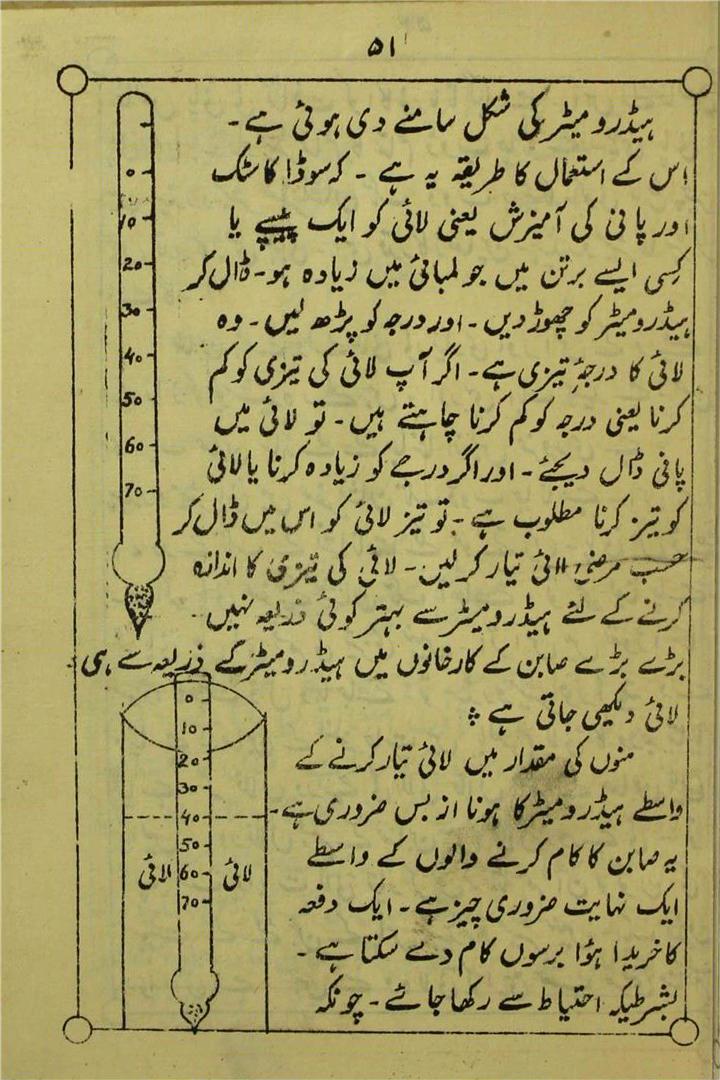 ۵۱
ہیڈرومیٹر کی شکل سامنے دی ہوئی ہے۔
اس کے استعمال کا طریقہ یہ ہے ۔ کہ سوڈا کاسٹک
اور پانی کی آمیزش یعنی لائی کو ایک پیپے یا
کسی ایسے برتن میں جو لمبائی میں زیادہ ہو۔ ڈال کر
ہیڈرومیٹر کو چھوڑ دیں۔ اور درجہ کو پڑھ لیں۔ وہ
لائی کا درجۂ تیزی ہے۔ اگر آپ لائی کی تیزی کو کم
کرنا یعنی درجہ کو کم کرنا چاہتے ہیں۔ تو لائی میں
پانی ڈال دیجئے۔ اور اگر درجے کو زیادہ کرنا یا لائی
کو تیز کرنا مطلوب ہے۔ تو تیز لائی کو اس میں ڈال کر
حسب مرضی لائی تیار کر لیں۔ لائی کی تیزی کا اندازہ
کرنے کے لئے ہیڈرومیٹر سے بہتر کوئی ذریعہ نہیں۔
بڑے بڑے صابن کے کارخانوں میں ہیڈرومیٹر کے ذریعہ سے ہی
لائی دیکھی جاتی ہے ؞
منوں کی مقدار میں لائی تیار کرنے کے
واسطے ہیڈرومیٹر کا ہونا از بس ضروری ہے۔
یہ صابن کا کام کرنے والوں کے واسطے
ایک نہایت ضروری چیز ہے۔ ایک دفعہ
کا خریدا ہؤا برسوں کام دے سکتا ہے ۔
بشرطیکہ احتیاط سے رکھا جائے۔ چونکہ
0
10
20
30
40
50
60
70
0
10
20
30
40
50
60
70
لائی
لائی